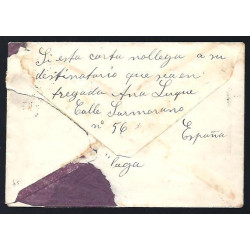 Si esta carta nollega a su
destinatario que sea en
tregada Ana Luque
Calle Sarmorano
nº 56
España